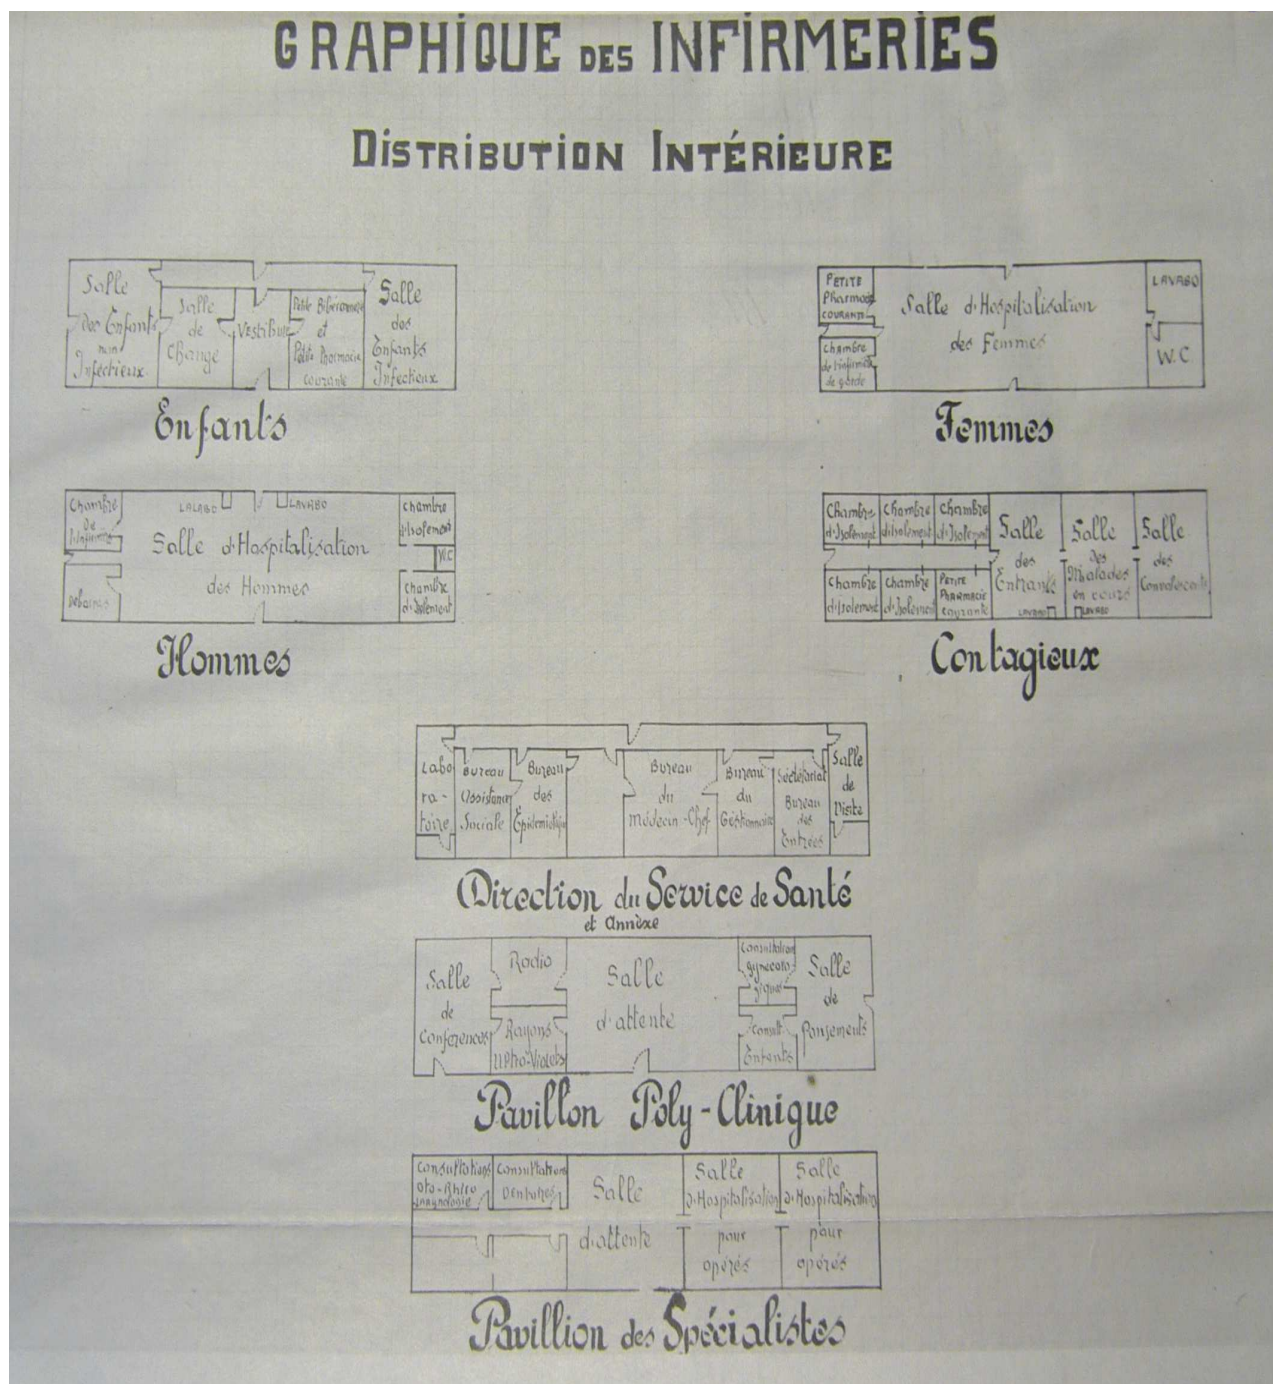 GRAPHIQUE DES INFIRMERIES
DISTRIBUTION INTÉRIEURE
Salle
des Enfants
non
Infectieux
Salle
de
Change
Vestibule
Petite Biberonnerie
et
Petite Pharmacie
courante
Salle
des
Enfants
Infectieux
Enfants
PETITE
Pharmacie
COURANTE
Chambre
de l'infirmière
de garde
Salle d'Hospitalisation
des Femmes
LAVABO
W.C
Femmes
Chambre
De
l'Infirmier
Debarras
LALABO
LAVABO
Salle d'Hospitalisation
des Hommes
chambre
d'Isolement
W.C
Chambre
d'Isolement
Hommes
Chambre
d'Isolement
Chambre
d'Isolement
Chambre
d'Isolement
Chambre
d'Isolement
Chambre
d'Isolement
PETITE
PHARMACIE
courante
Salle
des
Entrants
LAVABO
Salle
des
Malades
en cours
LAVABO
Salle
des
Convalescents
Contagieux
Labo
ra-
toire
Bureau
Assistance
Sociale
Bureau
des
Bureau
du
médecin-Chef
Bureau
du
Gestionnaire
Sécrétariat
Bureau
des
Entrées
Salle
de
Visite
Direction du Service de Santé
et Annèxe
Salle
de
Conferences
Radio
Rayons
Ultra-Violets
Salle
d'attente
Consultation
gynecolo
giques
Consult
Enfants
Salle
de
Pansements
Pavillon Poly-Clinique
Consultations
Oto-Rhino
Consultations
Dentaires
Salle
d'attente
Salle
d'Hospitalisation
pour
opérés
Salle
d'Hospitalisation
pour
opérés
Pavillion des Spécialistes